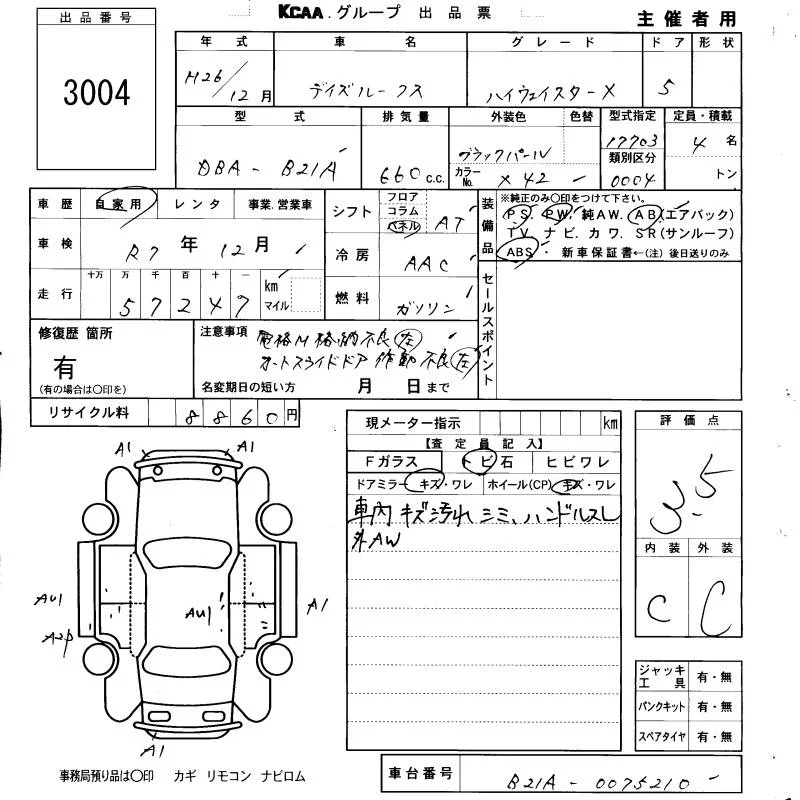 KCAA.グループ 出品票
主催者用
出品番号
3004
年式 車名 グレード ドア 形状
H26/12月 デイズルークス ハイウェイスターX 5
型式 排気量 外装色 色替 型式指定 定員・積載
DBA-B21A 660c.c. ブラックパール 17703 4名
カラーNo. X42 類別区分 0004 トン
車歴 自家用 レンタ 事業.営業車
シフト フロア コラム パネル AT
装備品 ※純正のみ〇印をつけて下さい。
PS. PW. 純AW. AB(エアバック)
TV. ナビ. カワ. SR(サンルーフ)
ABS・ 新車保証書←(注) 後日送りのみ
車検 R7年12月
冷房 AAC
走行 十万 万 千 百 十 一 km マイル
57247
燃料 ガソリン
セールスポイント
修復歴 箇所
有
(有の場合は〇印を)
注意事項 電格M格納不良(左)
オートスライドドア作動不良(左)
名変期日の短い方 月 日まで
リサイクル料 8860円
現メーター指示 km
【査定員記入】
Fガラス トビ石 ヒビワレ
ドアミラー キズ・ワレ ホイール(CP) キズ・ワレ
車内キズ汚れシミ、ハンドルスレ
外AW
評価点
3.5
内装 外装
C C
A1 A1
AU1 AU1 A1
A2P
A1
ジャッキ工具 有・無
パンクキット 有・無
スペアタイヤ 有・無
事務局預り品は〇印 カギ リモコン ナビロム
車台番号 B21A-0075210